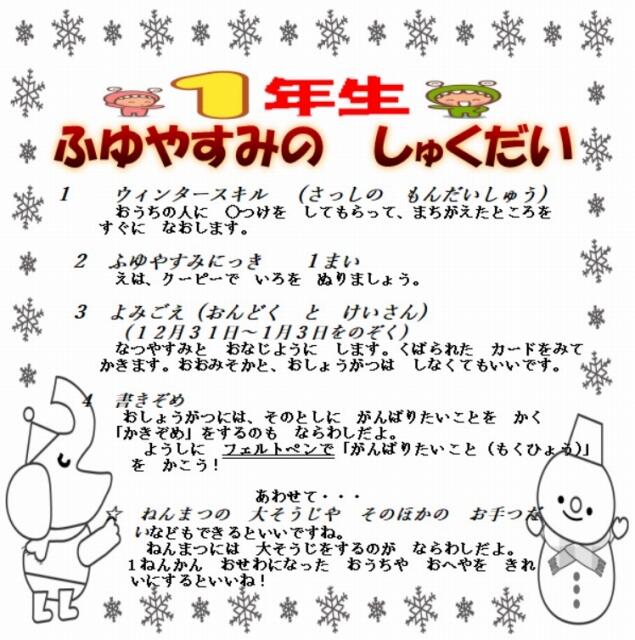 1年生
ふゆやすみの　しゅくだい
1　ウィンタースキル　（さっしの　もんだいしゅう）
おうちの人に　〇つけを　してもらって、まちがえたところを
すぐに　なおします。
2　ふゆやすみにっき　　1まい
えは、クーピーで　いろを　ぬりましょう。
3　よみごえ（おんどく　と　けいさん）
（12月31日～1月3日をのぞく）
なつやすみと　おなじように　します。くばられた　カードをみて
かきます。おおみそかと、おしょうがつは　しなくてもいいです。
4　書きぞめ
おしょうがつには、そのとしに　がんばりたいことを　かく
「かきぞめ」をするのも　ならわしだよ。
ようしに　フェルトペンで「がんばりたいこと（もくひょう）」
を　かこう！
あわせて・・・
☆　ねんまつの　大そうじや　そのほかの　お手つだ
いなどもできるといいですね。
ねんまつには　大そうじをするのが　ならわしだよ。
1ねんかん　おせわになった　おうちや　おへやを　きれ
いにするといいね！